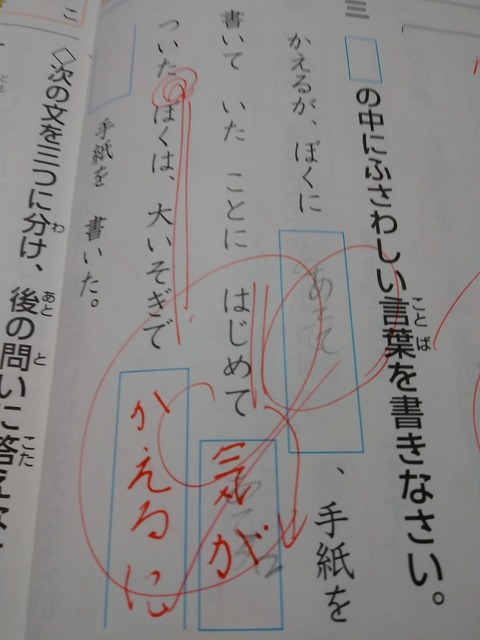 三
□の中にふさわしい言葉を書きなさい。
かえるが、ぼくに あてて 、手紙を
書いて いた ことに はじめて 気が
ついた ぼくは、大いそぎで かえるに
手紙を 書いた。
◇次の文を三つに分け、後の問いに答えな
こ